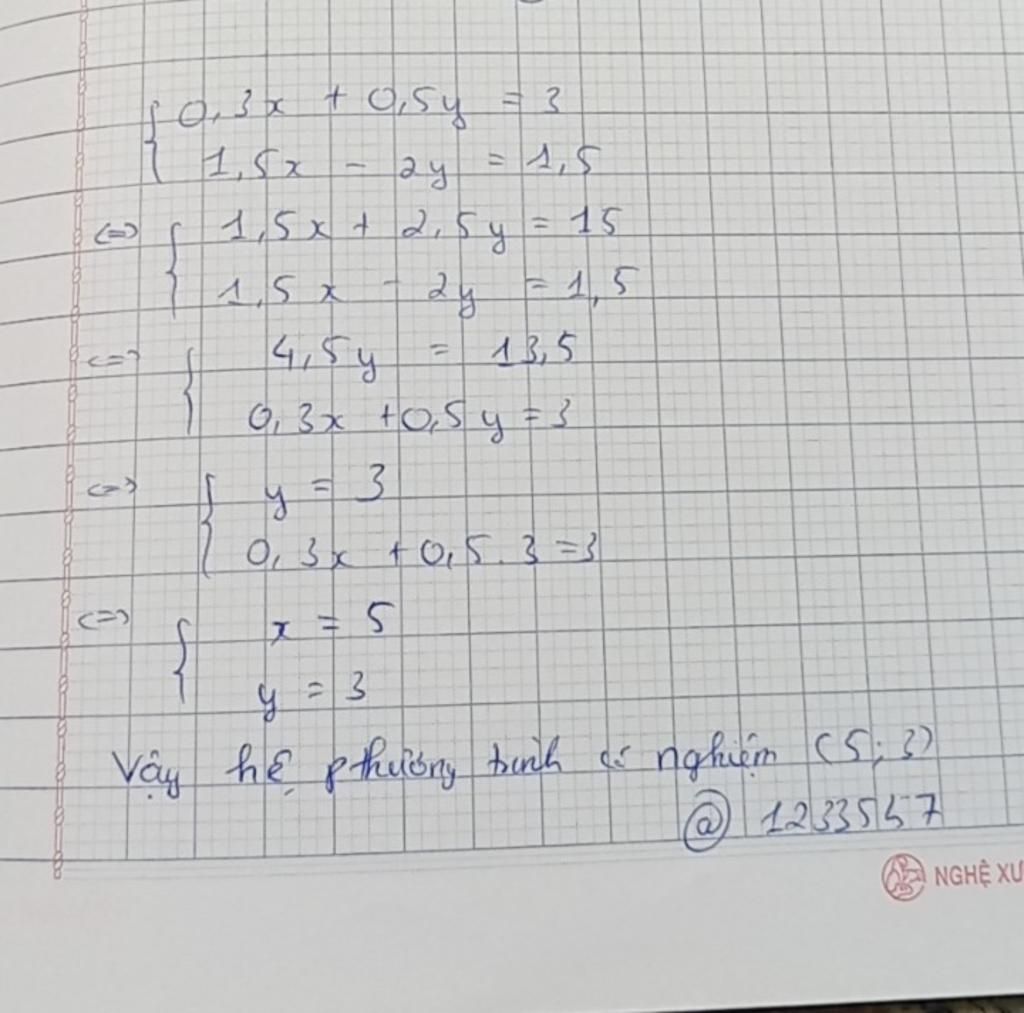 { 0,3x + 0,5y = 3
1,5x - 2y = 1,5
<=> { 1,5x + 2,5y = 15
1,5x - 2y = 1,5
<=> { 4,5y = 13,5
0,3x + 0,5y = 3
<=> { y = 3
0,3x + 0,5.3 = 3
<=> { x = 5
y = 3
Vậy hệ phương trình có nghiệm (5; 3)
@ 1233557
NGHỆ XU